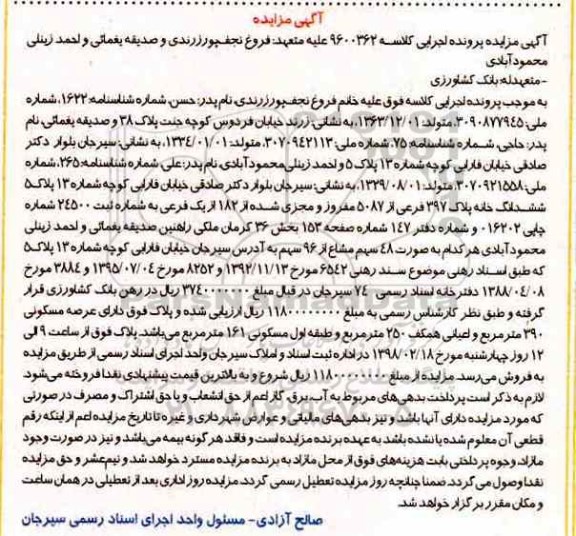 آگهی مزایده
آگهی مزایده پرونده اجرایی کلاسه ۹۶۰۰۳۶۲ علیه متعهد: فروغ نجف‌پورزرندی و صدیقه یغمائی و احمد زینلی
محمودآبادی
-متعهدله: بانک کشاورزی
به موجب پرونده اجرایی کلاسه فوق علیه خانم فروغ نجف‌پورزرندی، نام پدر: حسن، شماره شناسنامه: ۱۶۲۲، شماره
ملی: ۳۰۹۰۸۷۷۹۴۵، متولد: ۱۳۶۳/۱۲/۰۱، به نشانی: زرند خیابان فردوس کوچه جنت پلاک ۳۸ و صدیقه یغمائی، نام
پدر: حاجی، شماره شناسنامه: ۷۵، شماره ملی: ۳۰۷۰۹۴۲۱۱۳، متولد: ۱۳۳۴/۰۱/۰۱، به نشانی: سیرجان بلوار دکتر
صادقی خیابان فارابی کوچه شماره ۱۳ پلاک ۵ و احمد زینلی محمودآبادی، نام پدر: علی، شماره شناسنامه: ۲۶۵، شماره
ملی: ۳۰۷۰۹۲۱۵۵۸، متولد: ۱۳۲۹/۰۸/۰۱، به نشانی: سیرجان بلوار دکتر صادقی خیابان فارابی کوچه شماره ۱۳ پلاک ۵
ششدانگ خانه پلاک ۳۹۷ فرعی از ۵۰۸۷ مفروز و مجزی شده از ۱۸۲ از یک فرعی به شماره ثبت ۲۴۵۰۰ شماره
چاپی ۰۱۶۲۰۲ و شماره دفتر ۱۴۷ شماره صفحه ۱۵۳ بخش ۳۶ کرمان ملکی راهنین صدیقه یغمائی و احمد زینلی
محمودآبادی هر کدام به صورت ۴۸ سهم مشاع از ۹۶ سهم به آدرس سیرجان خیابان فارابی کوچه شماره ۱۳ پلاک ۵
که طبق اسناد رهنی موضوع سند رهنی ۶۵۴۲ مورخ ۱۳۹۲/۱۱/۱۳ و ۸۲۵۲ مورخ ۱۳۹۵/۰۷/۰۴ و ۳۸۸۴ مورخ
۱۳۸۸/۰۴/۰۸ دفترخانه اسناد رسمی ۷۴ سیرجان در قبال مبلغ ۳۷۴۰۰۰۰۰۰۰ ریال در رهن بانک کشاورزی قرار
گرفته و طبق نظر کارشناس رسمی به مبلغ ۱۱۸۰۰۰۰۰۰۰۰ ریال ارزیابی شده و پلاک فوق دارای عرصه مسکونی
۳۹۰ متر مربع و اعیانی همکف ۲۵۰ متر مربع و طبقه اول مسکونی ۱۶۱ متر مربع می‌باشد. پلاک فوق از ساعت ۹ الی
۱۲ روز چهارشنبه مورخ ۱۳۹۸/۰۲/۱۸ در اداره ثبت اسناد و املاک سیرجان واحد اجرای اسناد رسمی از طریق مزایده
به فروش می‌رسد. مزایده از مبلغ ۱۱۸۰۰۰۰۰۰۰۰ ریال شروع و به بالاترین قیمت پیشنهادی نقدا فروخته می‌شود.
لازم به ذکر است پرداخت بدهی‌های مربوط به آب، برق، گاز اعم از حق انشعاب و یا حق اشتراک و مصرف در صورتی
که مورد مزایده دارای آنها باشد و نیز بدهی‌های مالیاتی و عوارض شهرداری و غیره تا تاریخ مزایده اعم از اینکه رقم
قطعی آن معلوم شده یا نشده باشد به عهده برنده مزایده است و فاقد هر گونه بیمه می‌باشد و نیز در صورت وجود
مازاد، وجوه پرداختی بابت هزینه‌های فوق از محل مازاد به برنده مزایده مسترد خواهد شد و نیم‌عشر و حق مزایده
نقدا وصول می‌گردد. ضمنا چنانچه روز مزایده تعطیل رسمی گردد، مزایده روز اداری بعد از تعطیلی در همان ساعت
و مکان مقرر برگزار خواهد شد.
صالح آزادی- مسئول واحد اجرای اسناد رسمی سیرجان